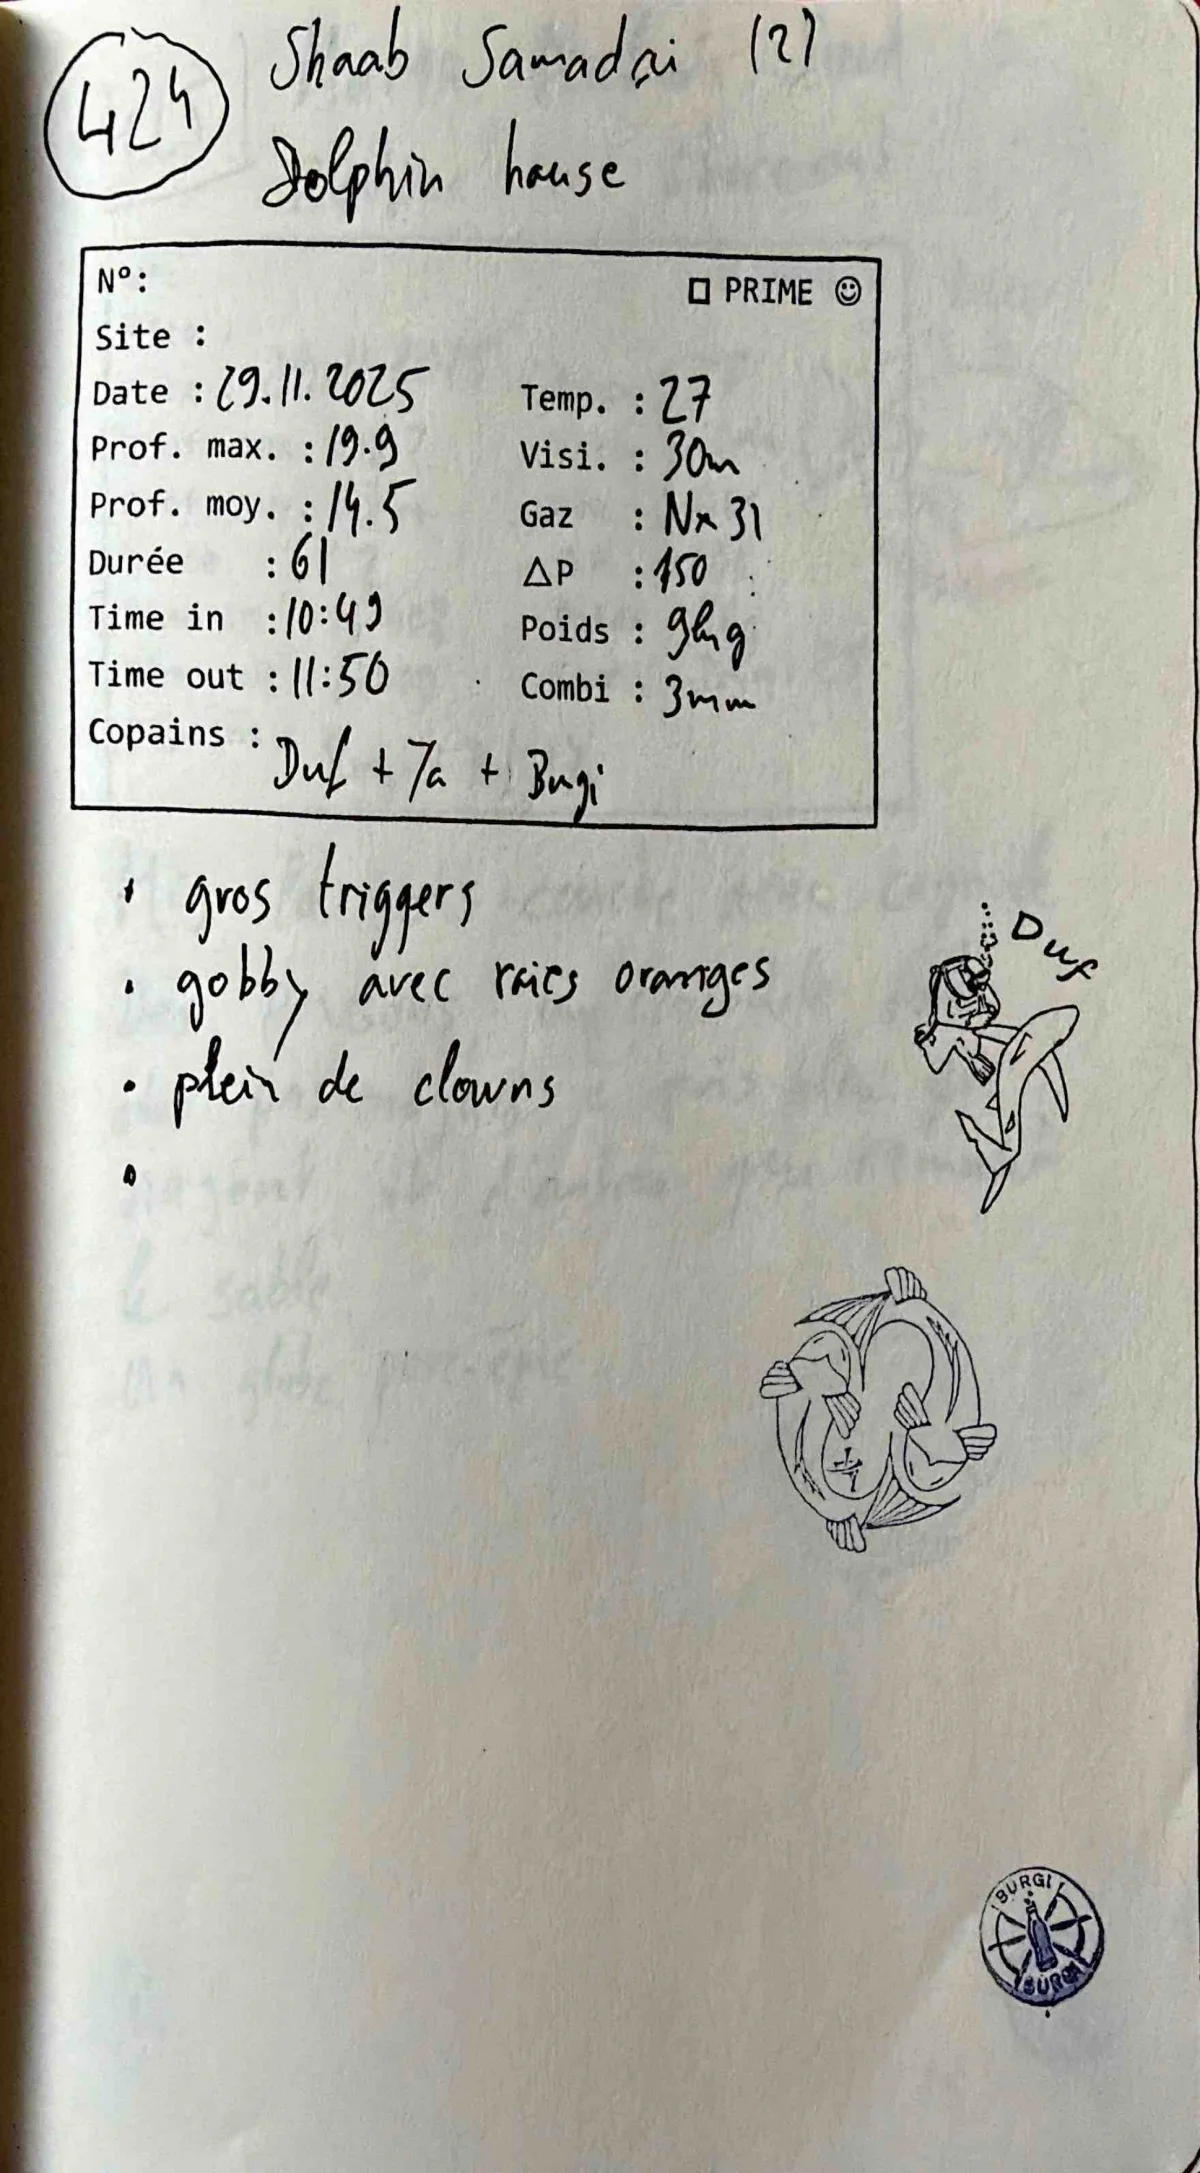 424
Shaab Samadai (2)
Dolphin hause
N°:
□ PRIME ☺
Site :
Date : 29.11.2025
Temp. : 27
Prof. max. : 19.9
Visi. : 30m
Prof. moy. : 14.5
Gaz : Nx 31
Durée : 61
ΔP : 150
Time in : 10:49
Poids : 9kg
Time out : 11:50
Combi : 3mm
Copains :
Duf + 7a + Bugi
• gros triggers
• gobby avec raies oranges
• plein de clowns
•
Duf
BURGI
BURGI